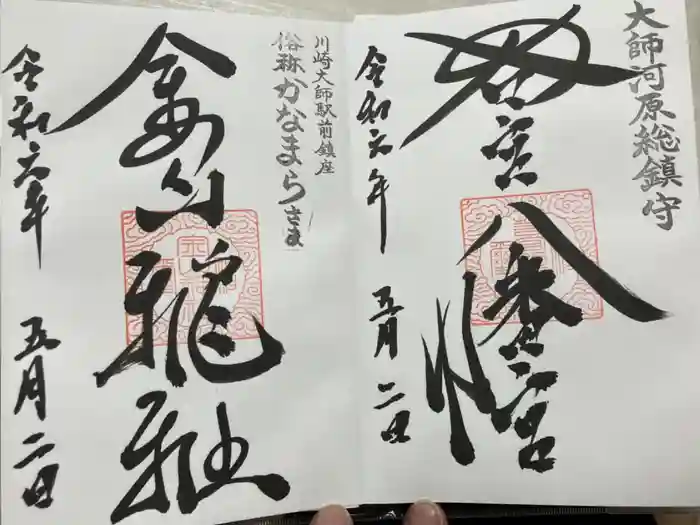 大師河原総鎮守
若宮八幡宮
令和元年
五月二日
川崎大師駅前鎮座
俗称かなまらさま
金山神社
令和元年
五月二日